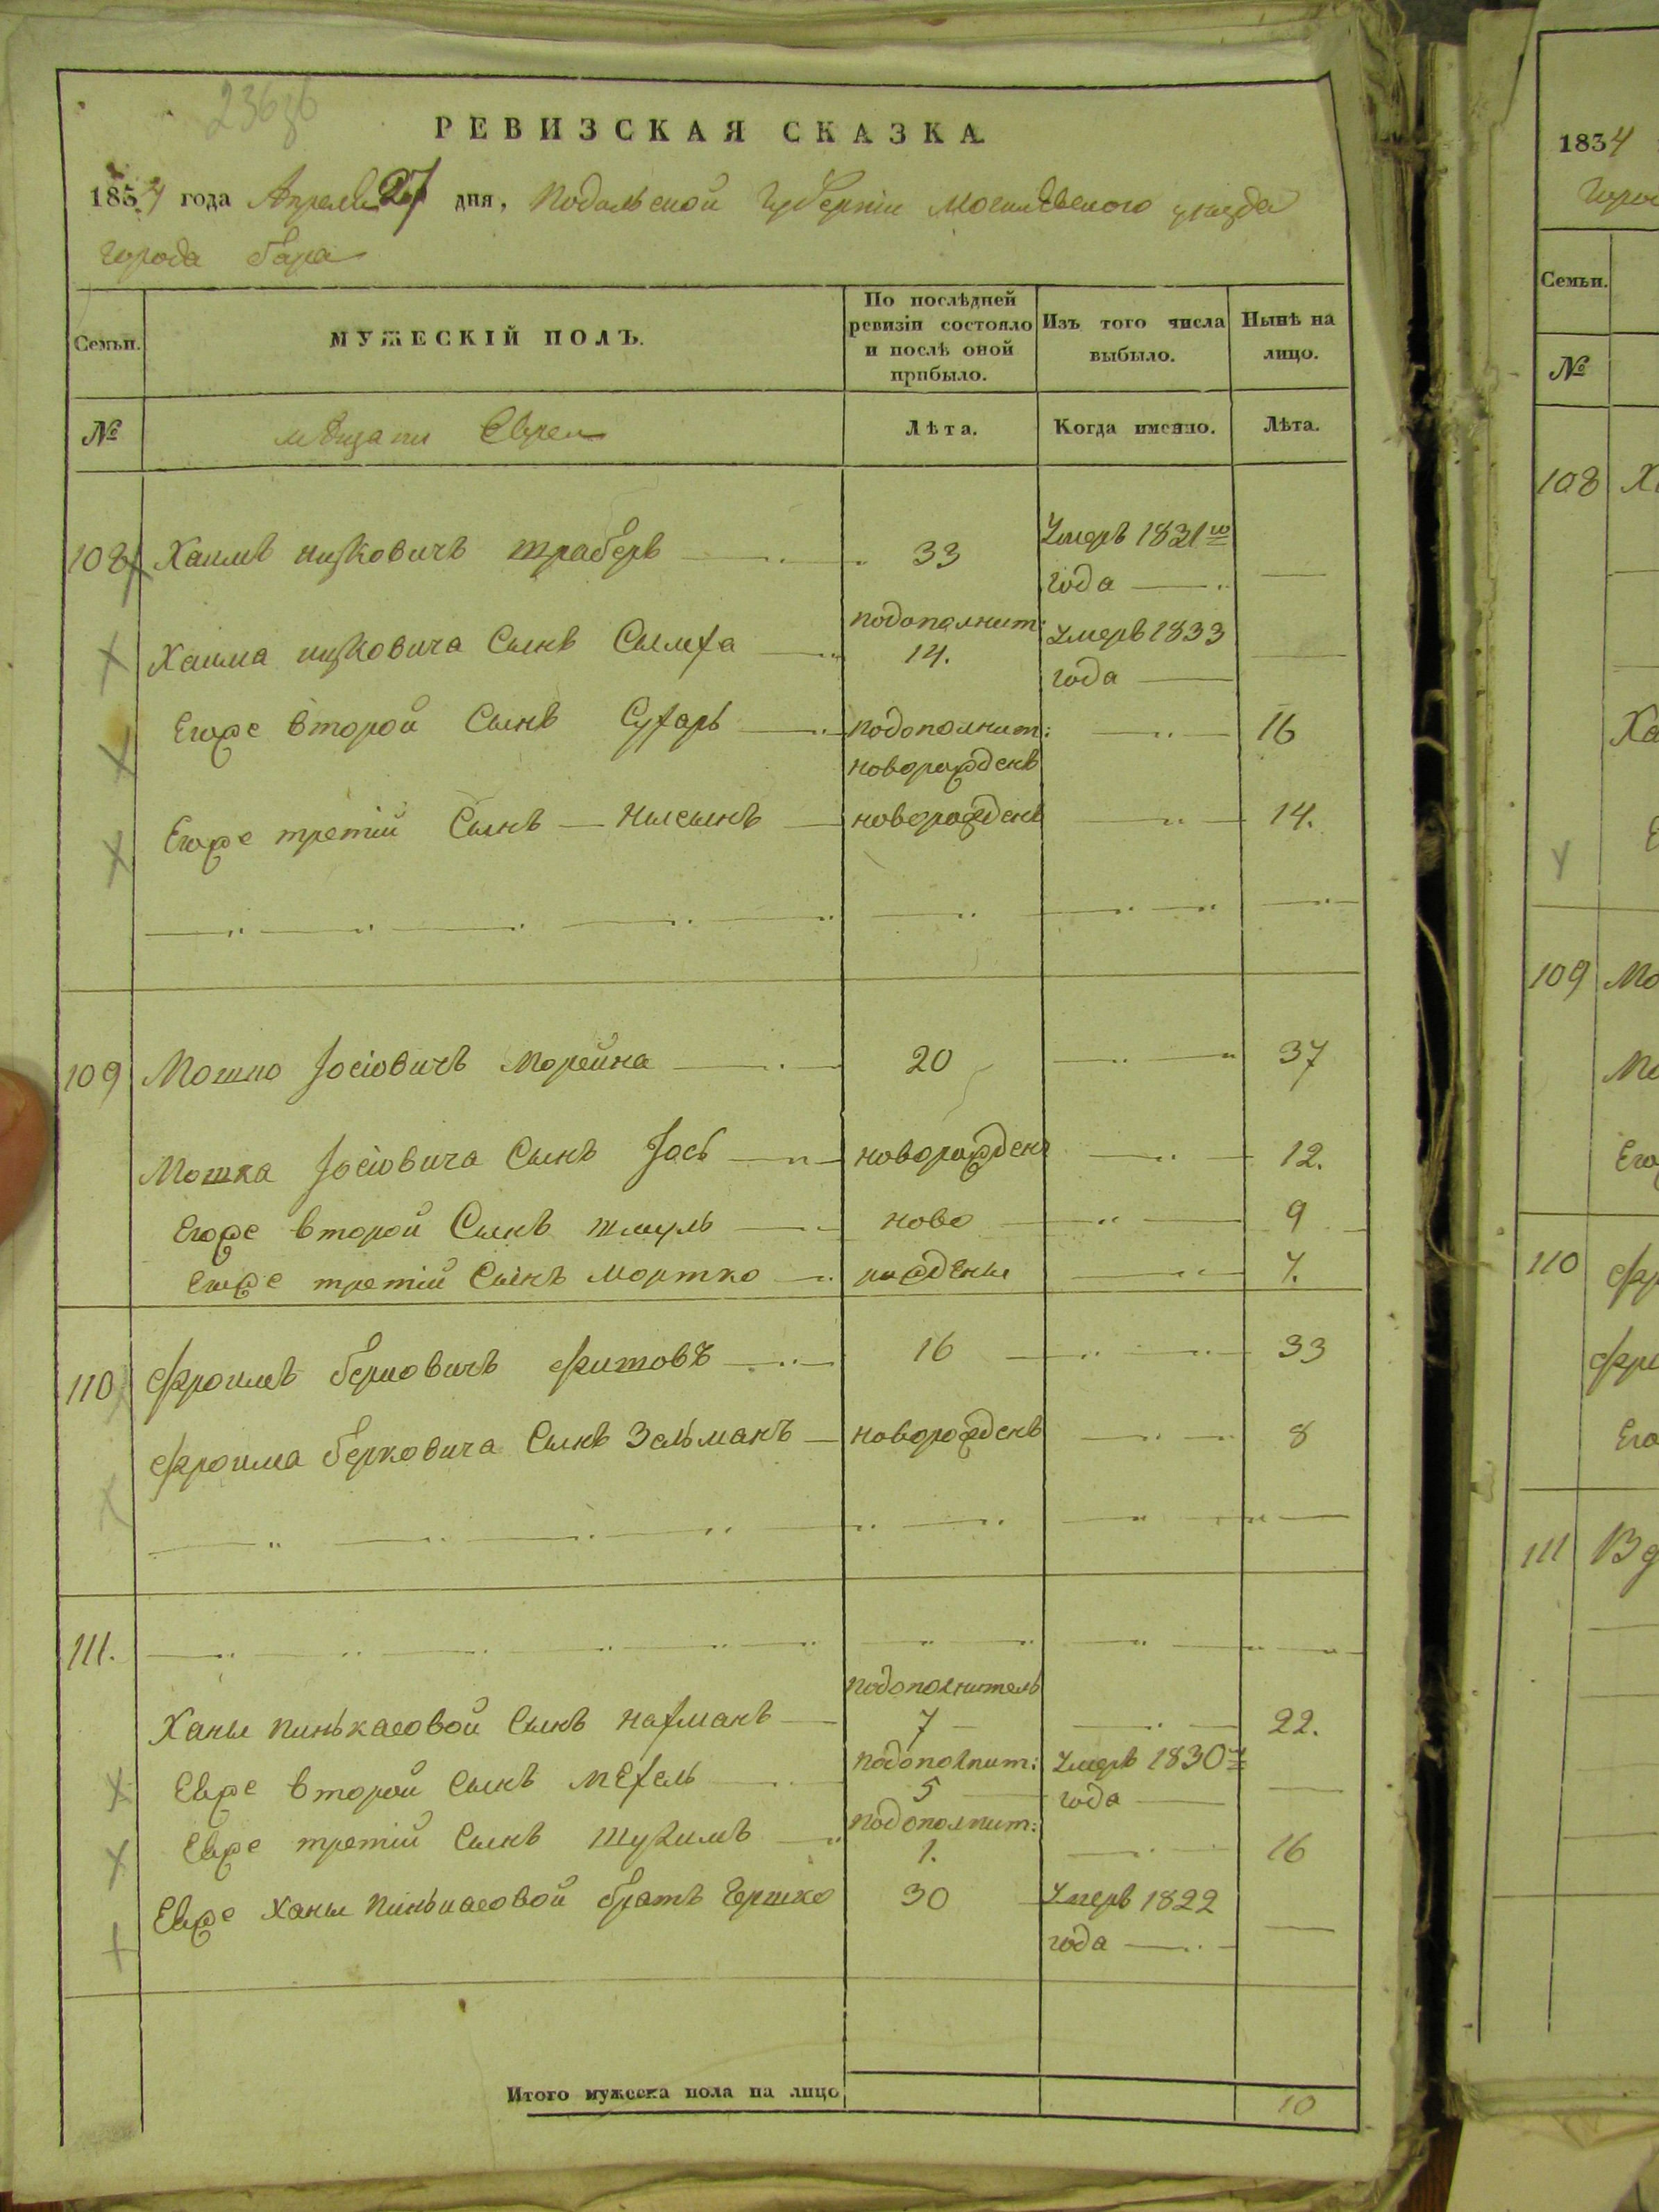 РЕВИЗСКАЯ СКАЗКА
1834 года Апреля 27 дня, Подольской Губерніи Могилѣвскаго уѣзда
города Бара
Семьи. МУЖЕСКІЙ ПОЛЪ. По послѣдней ревизіи состояло и послѣ оной прибыло. Изъ того числа выбыло. Нынѣ на лицо.
№ мѣщане Евреи Лѣта. Когда именно. Лѣта.
108 Хаимъ Ицковичъ 33 Умеръ 1831го года
Хаима Ицковича Сынъ подополнит: 14. умеръ 1833 года
Егоже второй Сынъ Сухарь подополнит: новорожденъ 16
Егоже третій Сынъ Нысынъ новорожденъ 14.
109 Мошко Іосіовичъ Морейна 20 37
Мошка Іосіовича Сынъ Іось новорожденъ 12.
Егоже второй Сынъ Шмуль ново 9
Егоже третій Сынъ Мортко рождены 7.
110 Фроимъ Берковичъ Фитовъ 16 33
Фроима Берковича Сынъ Зельманъ новорожденъ 8
111.
Ханы Пинькасовой Сынъ Нахманъ подополнитель 7 22.
Еяже второй Сынъ Мехель подополнит: 5 умеръ 1830 года
Еяже третій Сынъ подополнит: 1. 16
Еяже Ханы Пинькасовой братъ Гершко 30 Умеръ 1822 года
Итого мужеска пола на лицо 10
1834
Семьи.
№
108
109
110
111